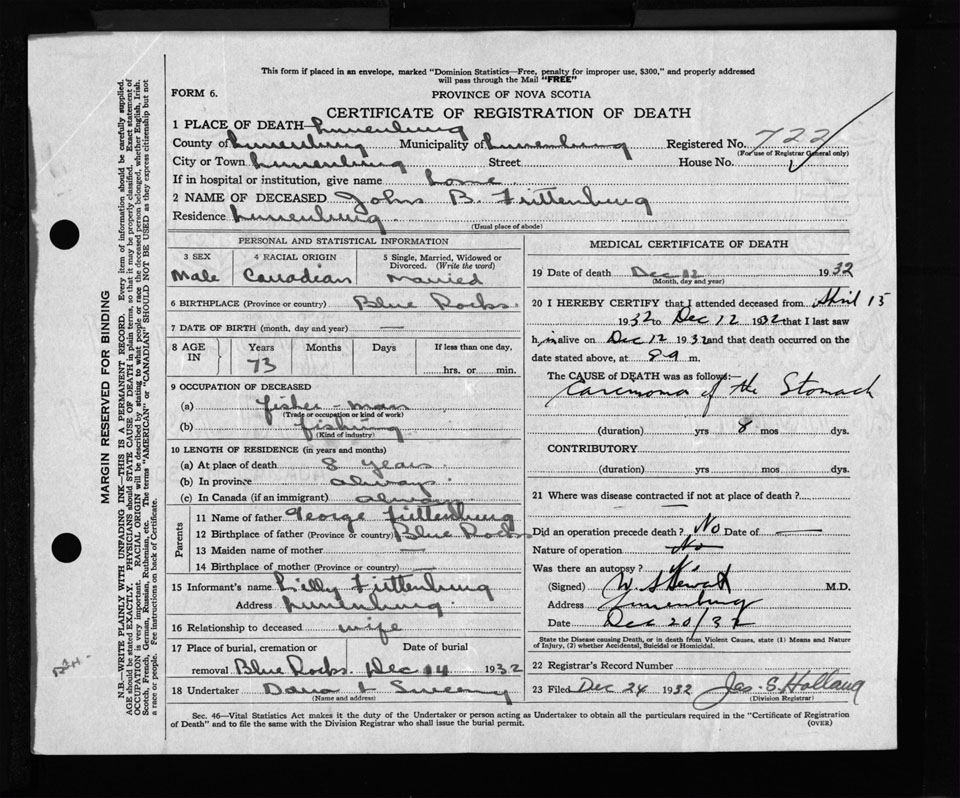 This form if placed in an envelope, marked "Dominion Statistics—Free, penalty for improper use, $300," and properly addressed
will pass through the Mail "FREE"
FORM 6.
PROVINCE OF NOVA SCOTIA
CERTIFICATE OF REGISTRATION OF DEATH
1 PLACE OF DEATH—Lunenburg
County of Lunenburg Municipality of Lunenburg Registered No. 722
(For use of Registrar General only)
City or Town Lunenburg Street House No.
If in hospital or institution, give name home
2 NAME OF DECEASED John B. Frittenburg
Residence Lunenburg
(Usual place of abode)
PERSONAL AND STATISTICAL INFORMATION
3 SEX 4 RACIAL ORIGIN 5 Single, Married, Widowed or
Divorced. (Write the word)
Male Canadian Married
6 BIRTHPLACE (Province or country) Blue Rocks
7 DATE OF BIRTH (month, day and year) —
8 AGE IN Years Months Days If less than one day,
73 hrs. or min.
9 OCCUPATION OF DECEASED
(a) fisher-man
(Trade or occupation or kind of work)
(b) fishing
(Kind of industry)
10 LENGTH OF RESIDENCE (in years and months)
(a) At place of death 8 years
(b) In province always
(c) In Canada (if an immigrant) always
Parents
11 Name of father George Frittenburg
12 Birthplace of father (Province or country) Blue Rocks
13 Maiden name of mother —
14 Birthplace of mother (Province or country) —
15 Informant's name Lilly Frittenburg
Address Lunenburg
16 Relationship to deceased wife
17 Place of burial, cremation or Date of burial
removal Blue Rocks. Dec 14 1932
18 Undertaker Dana L Sweeny
(Name and address)
MEDICAL CERTIFICATE OF DEATH
19 Date of death Dec 12 1932
(Month, day and year)
20 I HEREBY CERTIFY that I attended deceased from April 15
1932 to Dec 12 1932 that I last saw
him alive on Dec 12 1932 and that death occurred on the
date stated above, at 8 a m.
The CAUSE of DEATH was as follows:—
Carcinoma of the Stomach
(duration) yrs 8 mos dys.
CONTRIBUTORY
(duration) yrs. mos. dys.
21 Where was disease contracted if not at place of death?
—
Did an operation precede death? No Date of —
Nature of operation No
Was there an autopsy? No
(Signed) W. Stewart M.D.
Address Lunenburg
Date Dec 20/32
State the Disease causing Death, or in death from Violent Causes, state (1) Means and Nature
of Injury, (2) whether Accidental, Suicidal or Homicidal.
22 Registrar's Record Number
23 Filed Dec 24 1932 Jas. S. Hollaug
(Division Registrar)
Sec. 46—Vital Statistics Act makes it the duty of the Undertaker or person acting as Undertaker to obtain all the particulars required in the "Certificate of Registration
of Death" and to file the same with the Division Registrar who shall issue the burial permit. (OVER)
MARGIN RESERVED FOR BINDING
N.B.—WRITE PLAINLY WITH UNFADING INK—THIS IS A PERMANENT RECORD. Every item of information should be carefully supplied.
AGE should be stated EXACTLY. PHYSICIANS should STATE CAUSE OF DEATH in plain terms, so that it may be properly classified. Exact statement of
OCCUPATION is very important. RACIAL ORIGIN will be described by stating to what people or race the deceased person belonged, whether English, Irish,
Scotch, French, German, Russian, Ruthenian, etc. The terms "AMERICAN" or "CANADIAN" SHOULD NOT BE USED as they express citizenship but not
a race or people. Fee instructions on back of Certificate.